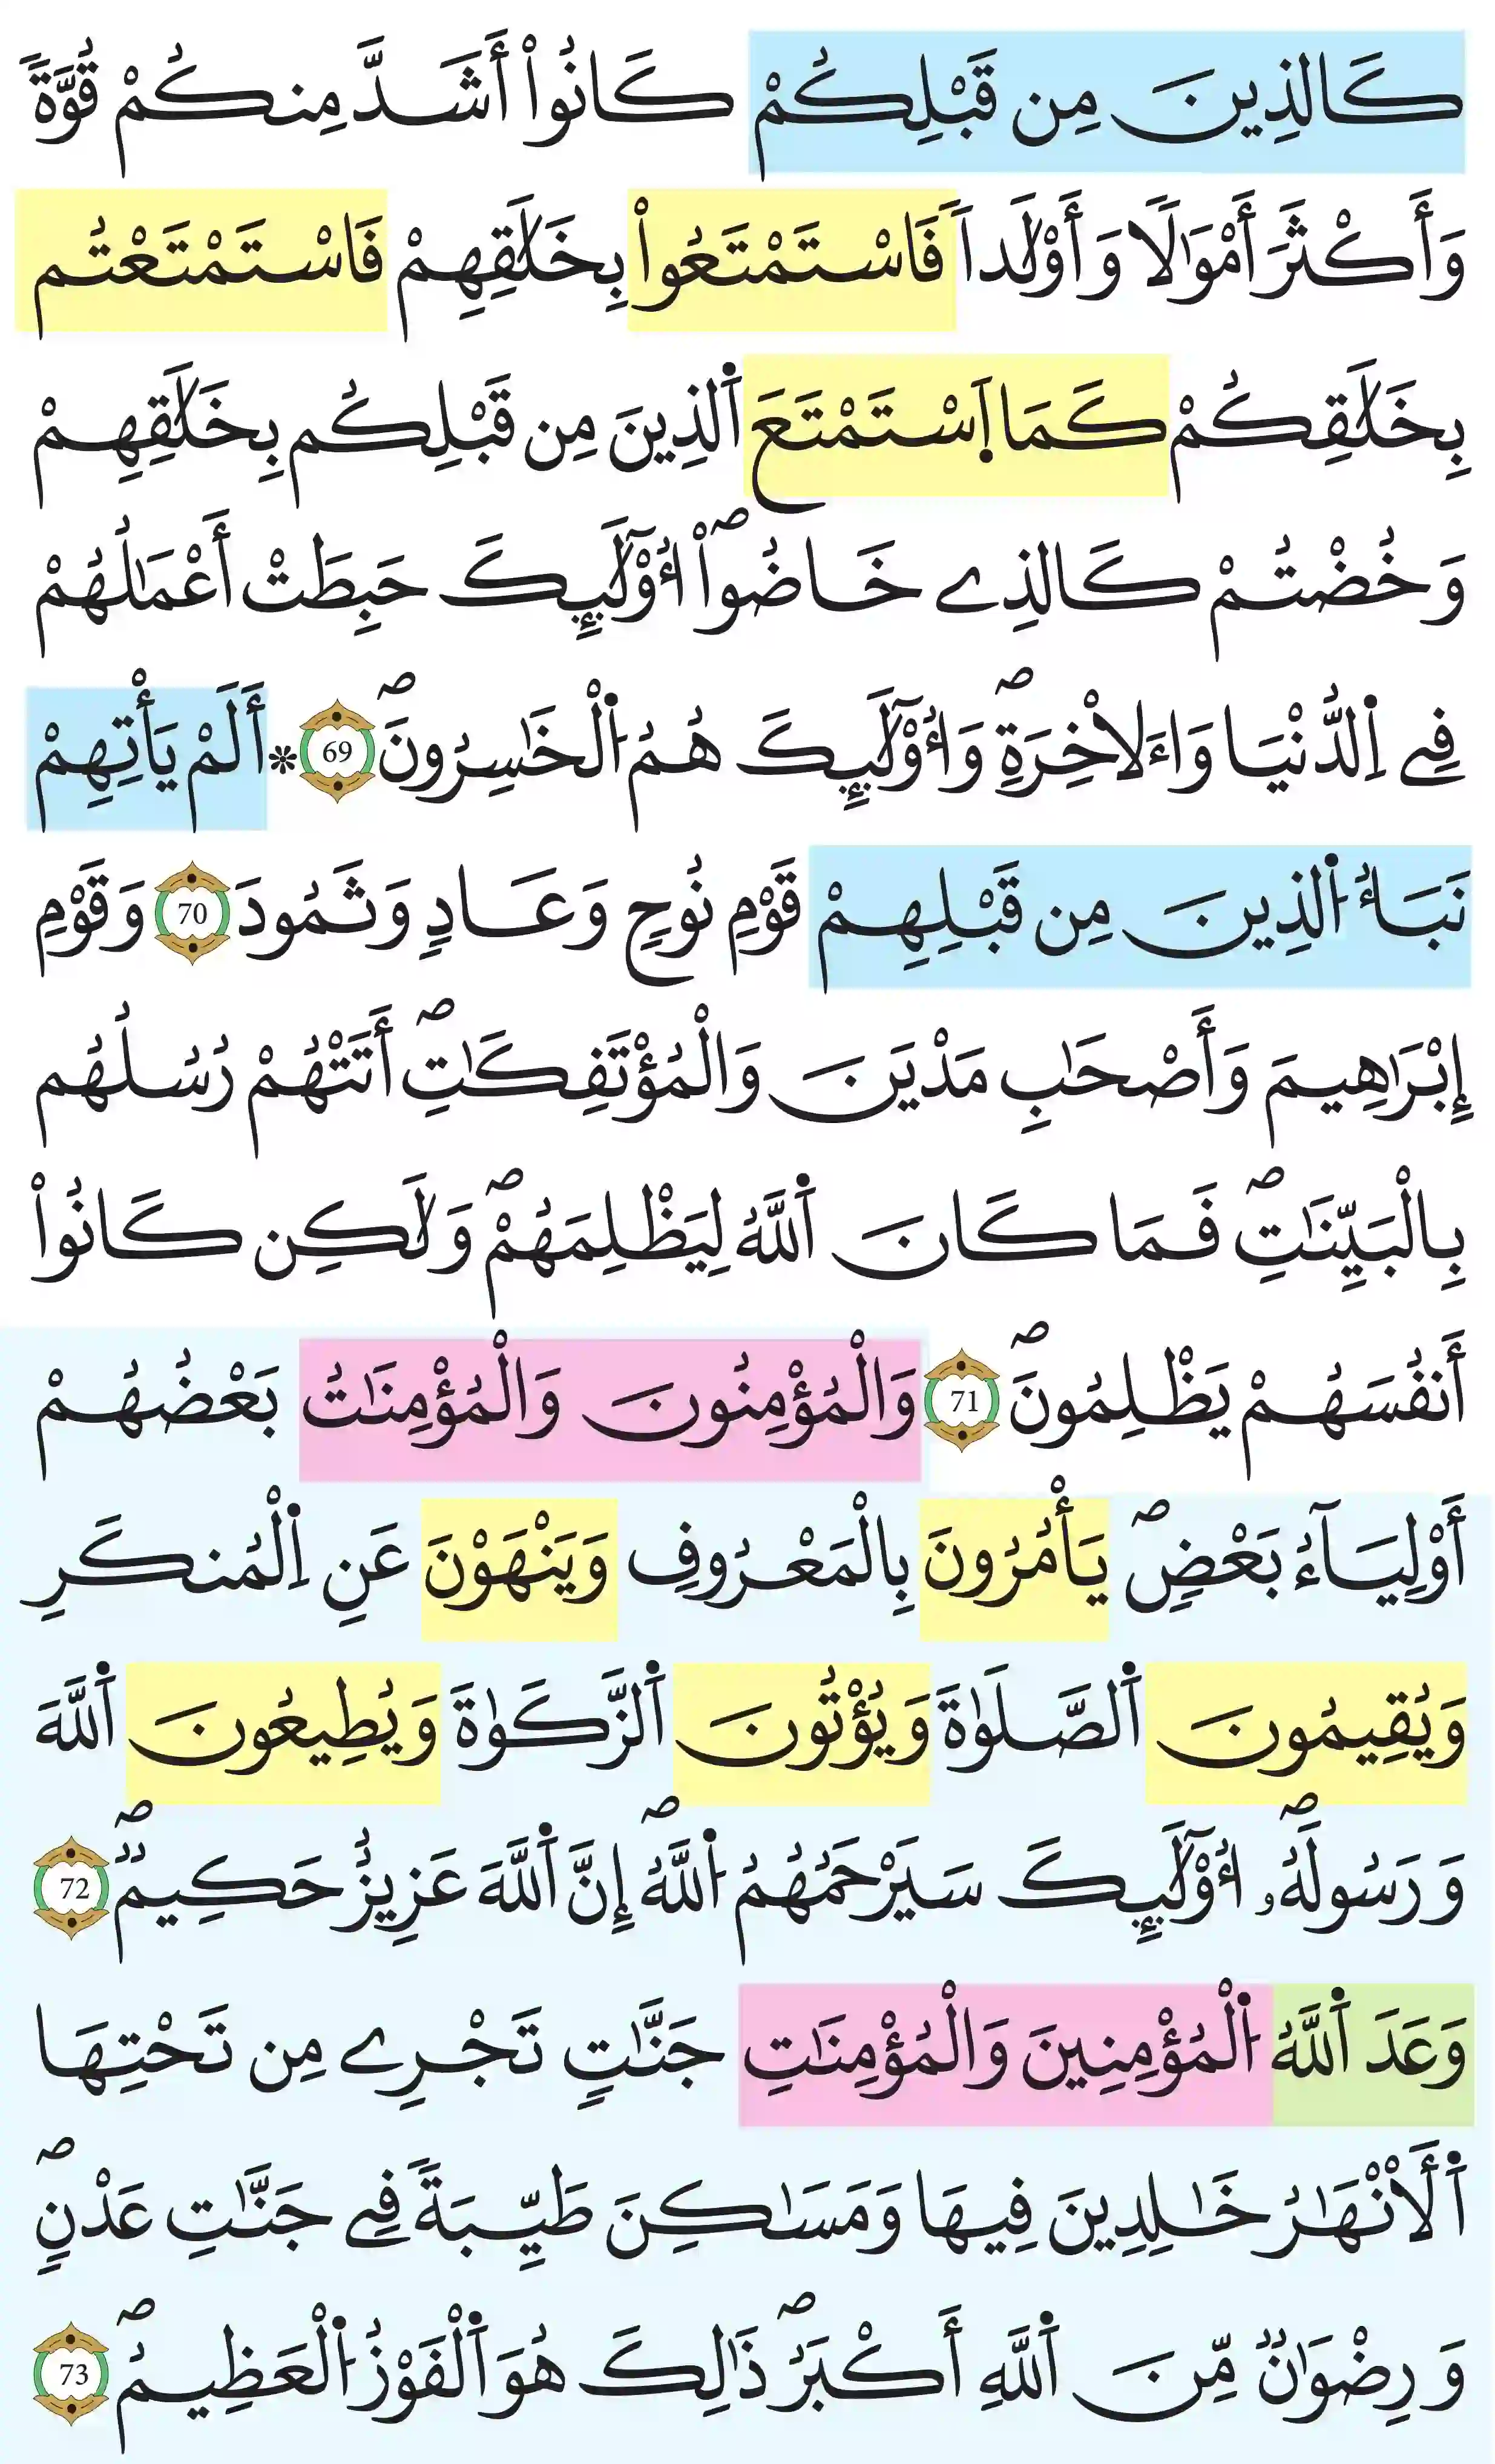 كَالذِينَ مِن قَبْلِكُمْ كَانُواْ أَشَدَّ مِنكُمْ قُوَّةٗ
وَأَكْثَرَ أَمْوَٰلٗا وَأَوْلَٰداٗ فَاسْتَمْتَعُواْ بِخَلَٰقِهِمْ فَاسْتَمْتَعْتُم
بِخَلَٰقِكُمْ كَمَا اَ۪سْتَمْتَعَ اَ۬لذِينَ مِن قَبْلِكُم بِخَلَٰقِهِمْ
وَخُضْتُمْ كَالذِے خَاضُوٓاْۖ أُوْلَٰٓئِكَ حَبِطَتْ أَعْمَٰلُهُمْ
فِے اِ۬لدُّنْيَا وَالَاخِرَةِۖ وَأُوْلَٰٓئِكَ هُمُ اُ۬لْخَٰسِرُونَۖ 69 * أَلَمْ يَأْتِهِمْ
نَبَأُ اُ۬لذِينَ مِن قَبْلِهِمْ قَوْمِ نُوحٖ وَعَادٖ وَثَمُودَ 70 وَقَوْمِ
إِبْرَٰهِيمَ وَأَصْحَٰبِ مَدْيَنَ وَالْمُؤْتَفِكَٰتِۖ أَتَتْهُمْ رُسُلُهُم
بِالْبَيِّنَٰتِۖ فَمَا كَانَ اَ۬للَّهُ لِيَظْلِمَهُمْۖ وَلَٰكِن كَانُواْ
أَنفُسَهُمْ يَظْلِمُونَۖ 71 وَالْمُؤْمِنُونَ وَالْمُؤْمِنَٰتُ بَعْضُهُمْ
أَوْلِيَآءُ بَعْضٖۖ يَأْمُرُونَ بِالْمَعْرُوفِ وَيَنْهَوْنَ عَنِ اِ۬لْمُنكَرِ
وَيُقِيمُونَ اَ۬لصَّلَوٰةَ وَيُؤْتُونَ اَ۬لزَّكَوٰةَ وَيُطِيعُونَ اَ۬للَّهَ
وَرَسُولَهُۥٓۖ أُوْلَٰٓئِكَ سَيَرْحَمُهُمُ اُ۬للَّهُۖ إِنَّ اَ۬للَّهَ عَزِيزٌ حَكِيمٞۖ 72
وَعَدَ اَ۬للَّهُ اُ۬لْمُؤْمِنِينَ وَالْمُؤْمِنَٰتِ جَنَّٰتٖ تَجْرِے مِن تَحْتِهَا
اَ۬لْأَنْهَٰرُ خَٰلِدِينَ فِيهَا وَمَسَٰكِنَ طَيِّبَةٗ فِے جَنَّٰتِ عَدْنٖۖ
وَرِضْوَٰنٞ مِّنَ اَ۬للَّهِ أَكْبَرُۖ ذَٰلِكَ هُوَ اَ۬لْفَوْزُ اُ۬لْعَظِيمُۖ 73